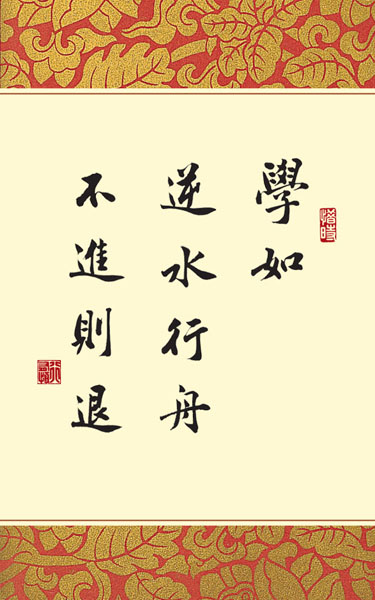 學如
逆水行舟
不進則退
惜時